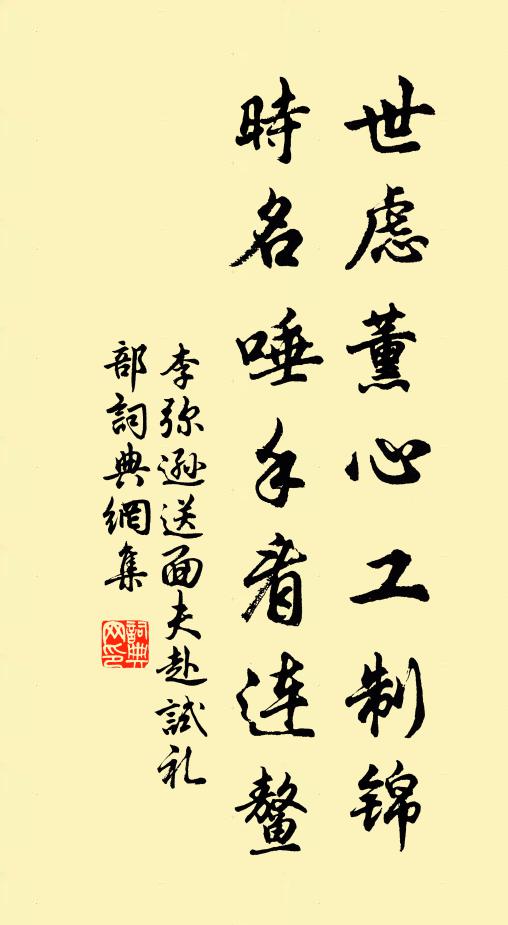 世慮薰心工制锦
時名唾手看連鳌
李弥逊送面夫赴試礼
部詞典網集
詞典
网印